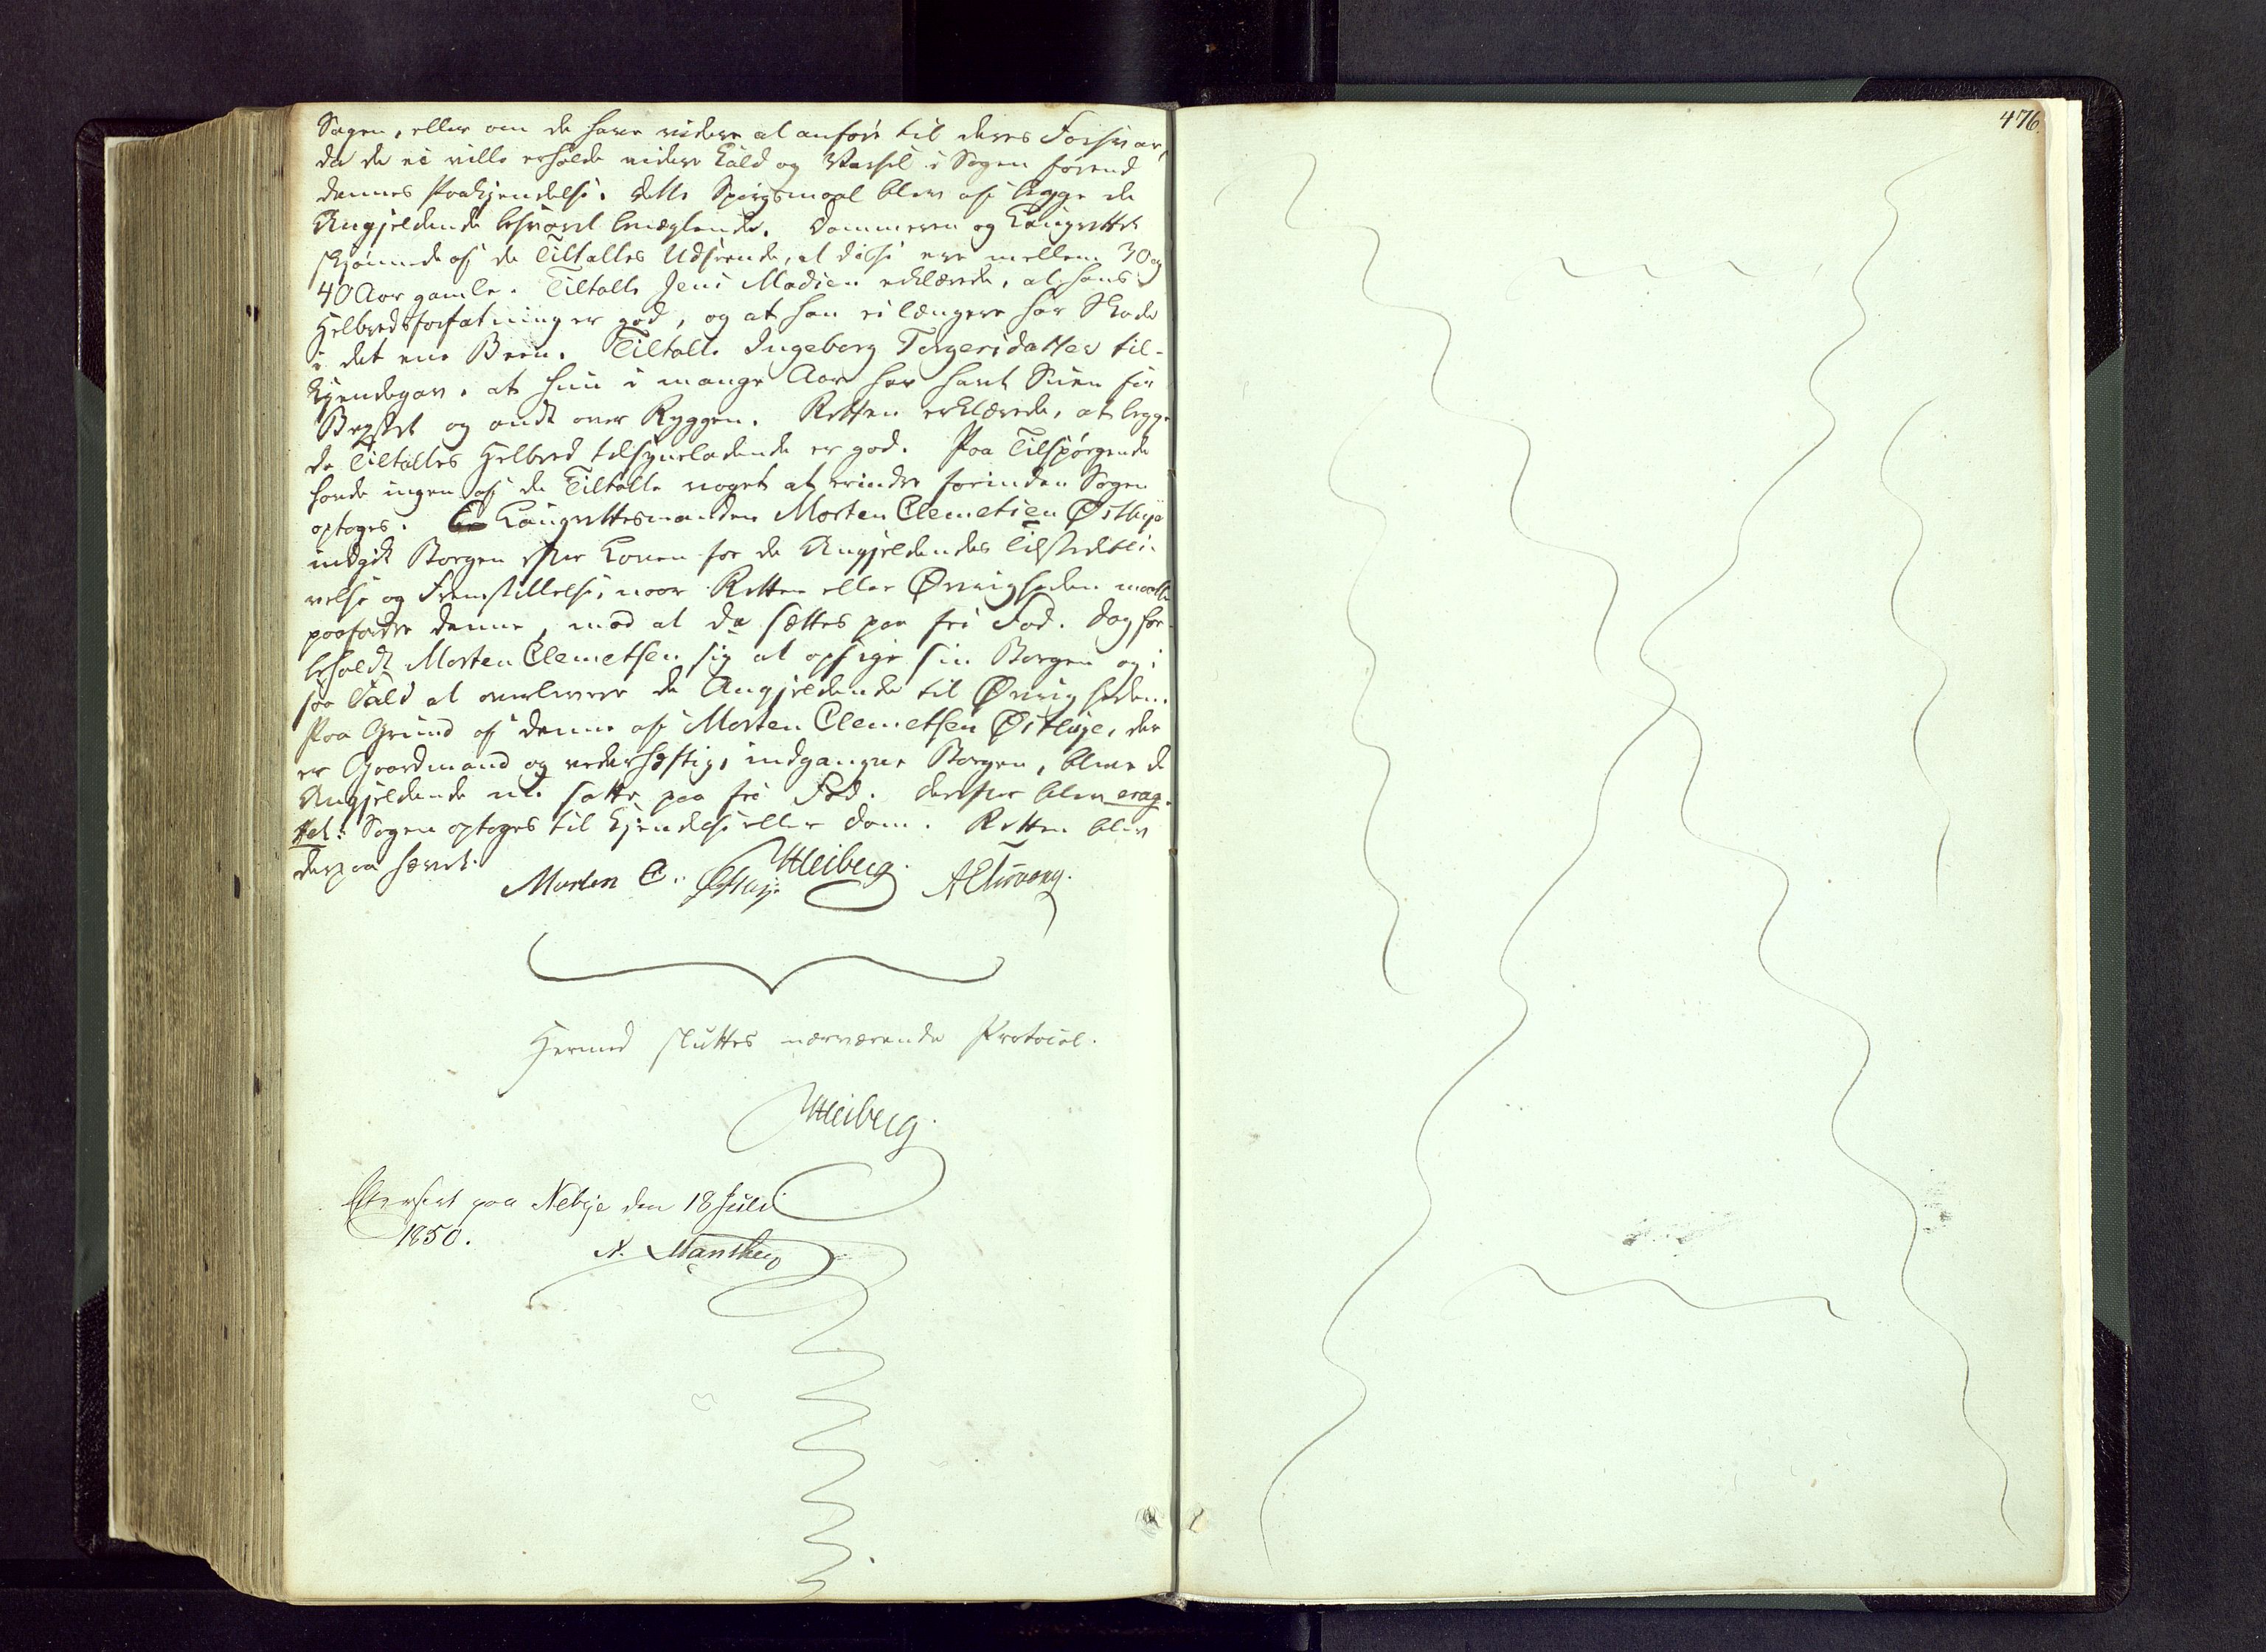 Sagen, eller om de have videre at anføre til deres Forsvar,
da de ei ville erholde videre Kald og Varsel i Sagen førend
dennes Paakjendelse. Dette Spørgsmaal blev af begge de
Angjeldende besvaret benægtende. Dommeren og Laugrettet
skjønnede af de Tiltaltes Udseende, at disse ere mellem 30 og
40 Aar gamle. Tiltalte Jens Madsen erklærede, at hans
Helbredsforfatning er god, og at han ei længere har Skade
i det ene Been. Tiltalte Ingeborg Torgersdatter til-
kjendegav, at hun i mange Aar har havt Svien for
Brystet og ondt over Ryggen. Retten erklærede, at begge
de Tiltaltes Helbred tilsyneladende er god. Paa Tilspørgende
havde ingen af de Tiltalte noget at erindre forinden Sagen
optoges. Laugrettesmanden Morten Clemetsen Østbye
indgik Borgen efter Loven for de Angjeldendes Tilstedebli-
velse og Fremstillelse, naar Retten eller Øvrigheden maatte
paafordre denne, mod at de sættes paa fri Fod. Dog for-
beholdt Morten Clemetsen sig at opsige sin Borgen og i
saa Fald at overlevere de Angjeldende til Øvrigheden.
Paa Grund af denne af Morten Clemetsen Østbye, der
er Gaardmand og vederhæftig, indgangne Borgen, bleve de
Angjeldende nu satte paa fri Fod. Derefter blev erag-
tet: Sagen optages til Kjendelse eller Dom. Retten blev
derpaa hævet.
Morten C. Østbye Heiberg.
Hermed sluttes nærværende Protocol.
Heiberg.
Efterseet paa Nebye den 18 Juli
1850.
N.
476.